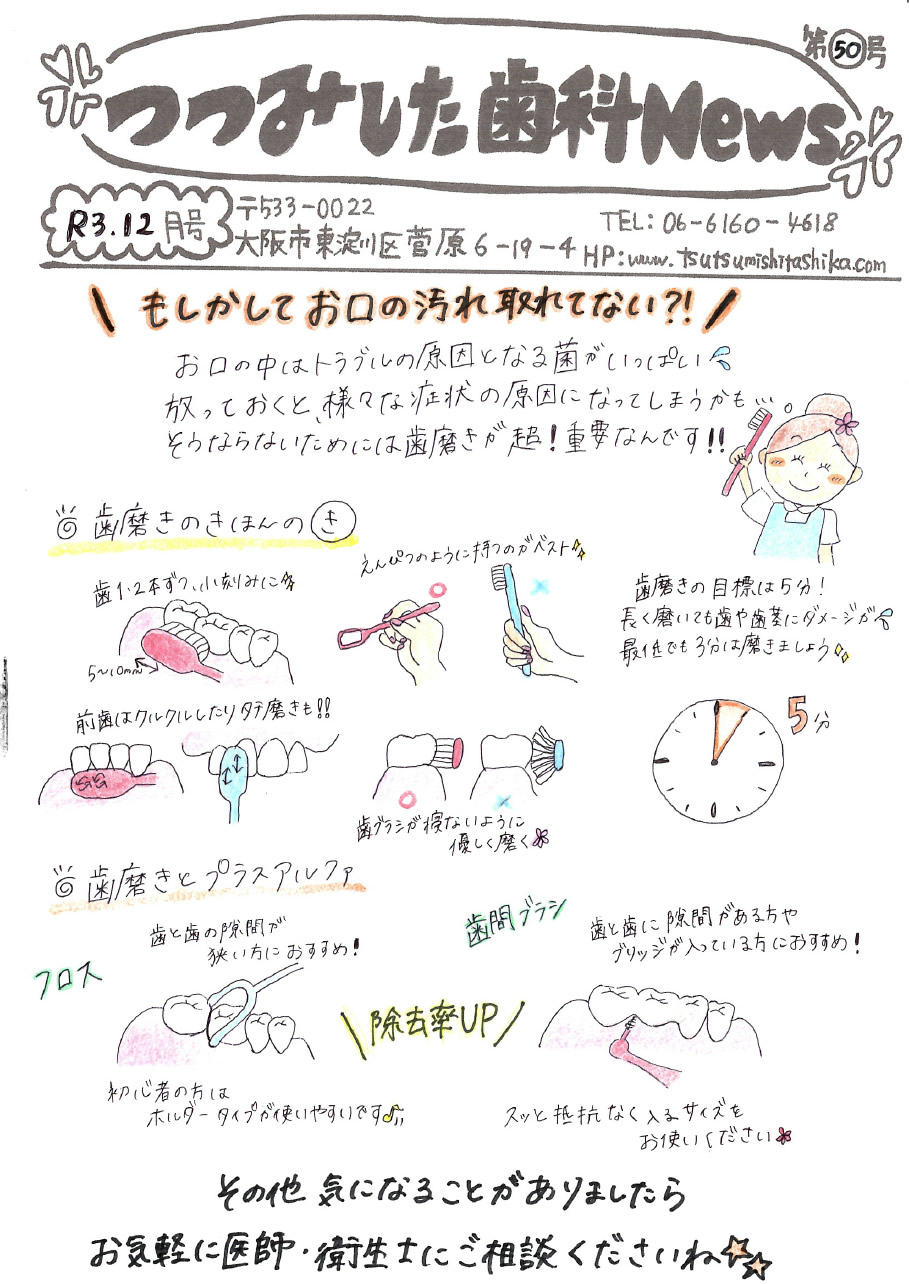 第50号
つつみした歯科News
R3.12月号
〒533-0022
大阪市東淀川区菅原6-19-4
TEL:06-6160-4618
HP:www.tsutsumishitashika.com
\ もしかしてお口の汚れ取れてない?! /
お口の中はトラブルの原因となる菌がいっぱい
放っておくと、様々な症状の原因になってしまうかも…
そうならないためには歯磨きが超!重要なんです!!
歯磨きのきほんのき
歯1・2本ずつ、小刻みに
5〜10mm
えんぴつのように持つのがベスト
歯磨きの目標は5分!
長く磨いても歯や歯茎にダメージが
最低でも3分は磨きましょう
前歯はクルクルしたりタテ磨きも!!
歯ブラシが寝ないように
優しく磨く
5分
歯磨きとプラスアルファ
フロス
歯と歯の隙間が
狭い方におすすめ!
歯間ブラシ
歯と歯に隙間がある方や
ブリッジが入っている方におすすめ!
\除去率UP/
初心者の方は
ホルダータイプが使いやすいです♪
スッと抵抗なく入るサイズを
お使いください
その他 気になることがありましたら
お気軽に医師・衛生士にご相談くださいね